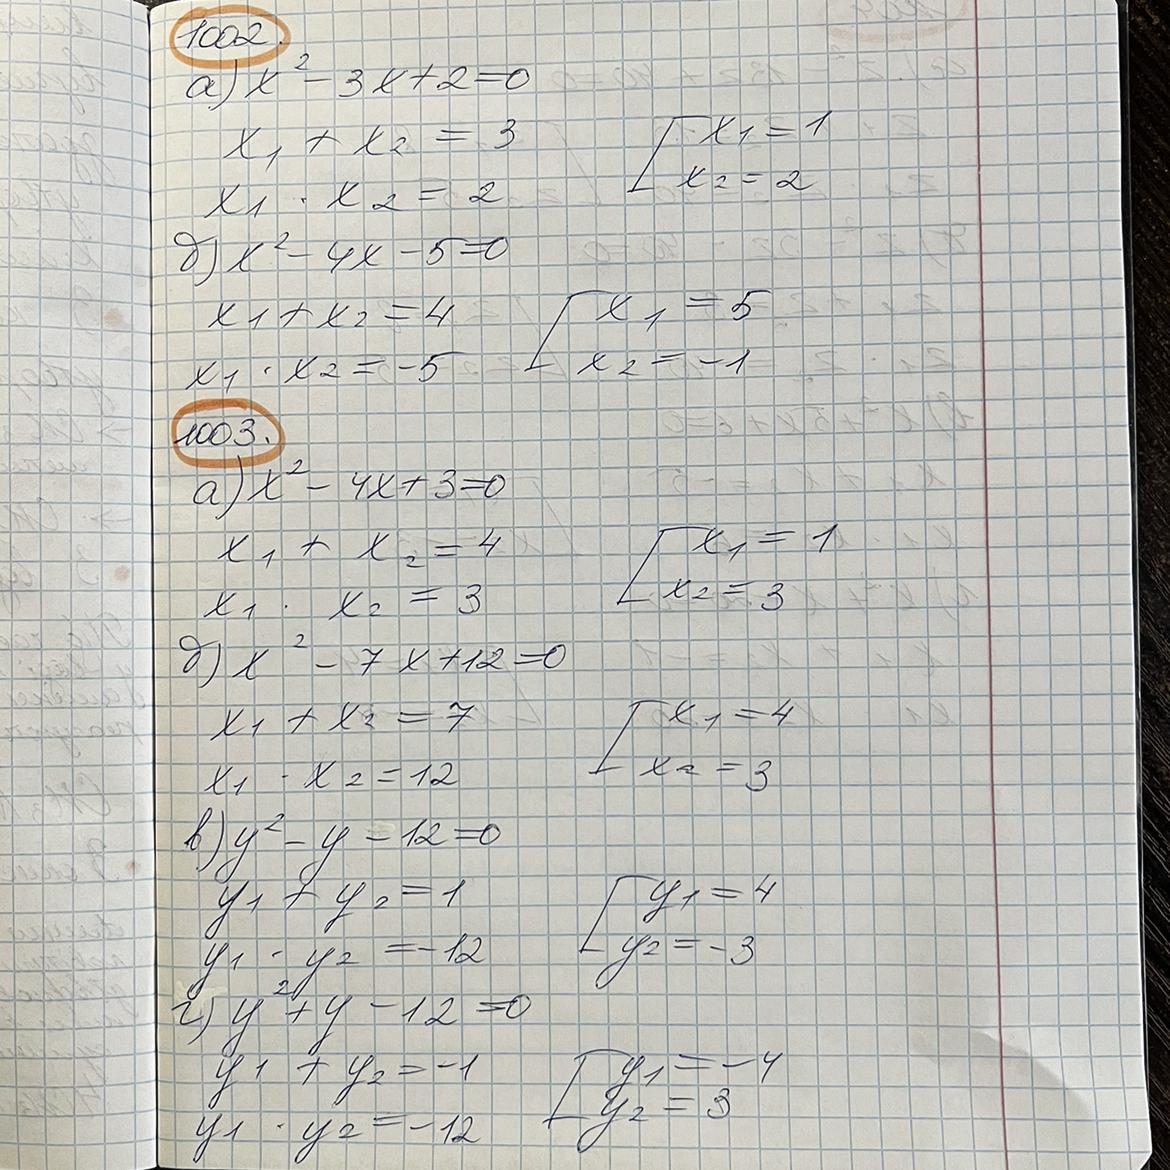 1002.
а) x² - 3x + 2 = 0
x₁ + x₂ = 3 [ x₁ = 1
x₁ · x₂ = 2 x₂ = 2
б) x² - 4x - 5 = 0
x₁ + x₂ = 4 [ x₁ = 5
x₁ · x₂ = -5 x₂ = -1
1003.
а) x² - 4x + 3 = 0
x₁ + x₂ = 4 [ x₁ = 1
x₁ · x₂ = 3 x₂ = 3
б) x² - 7x + 12 = 0
x₁ + x₂ = 7 [ x₁ = 4
x₁ · x₂ = 12 x₂ = 3
в) y² - y - 12 = 0
y₁ + y₂ = 1 [ y₁ = 4
y₁ · y₂ = -12 y₂ = -3
г) y² + y - 12 = 0
y₁ + y₂ = -1 [ y₁ = -4
y₁ · y₂ = -12 y₂ = 3